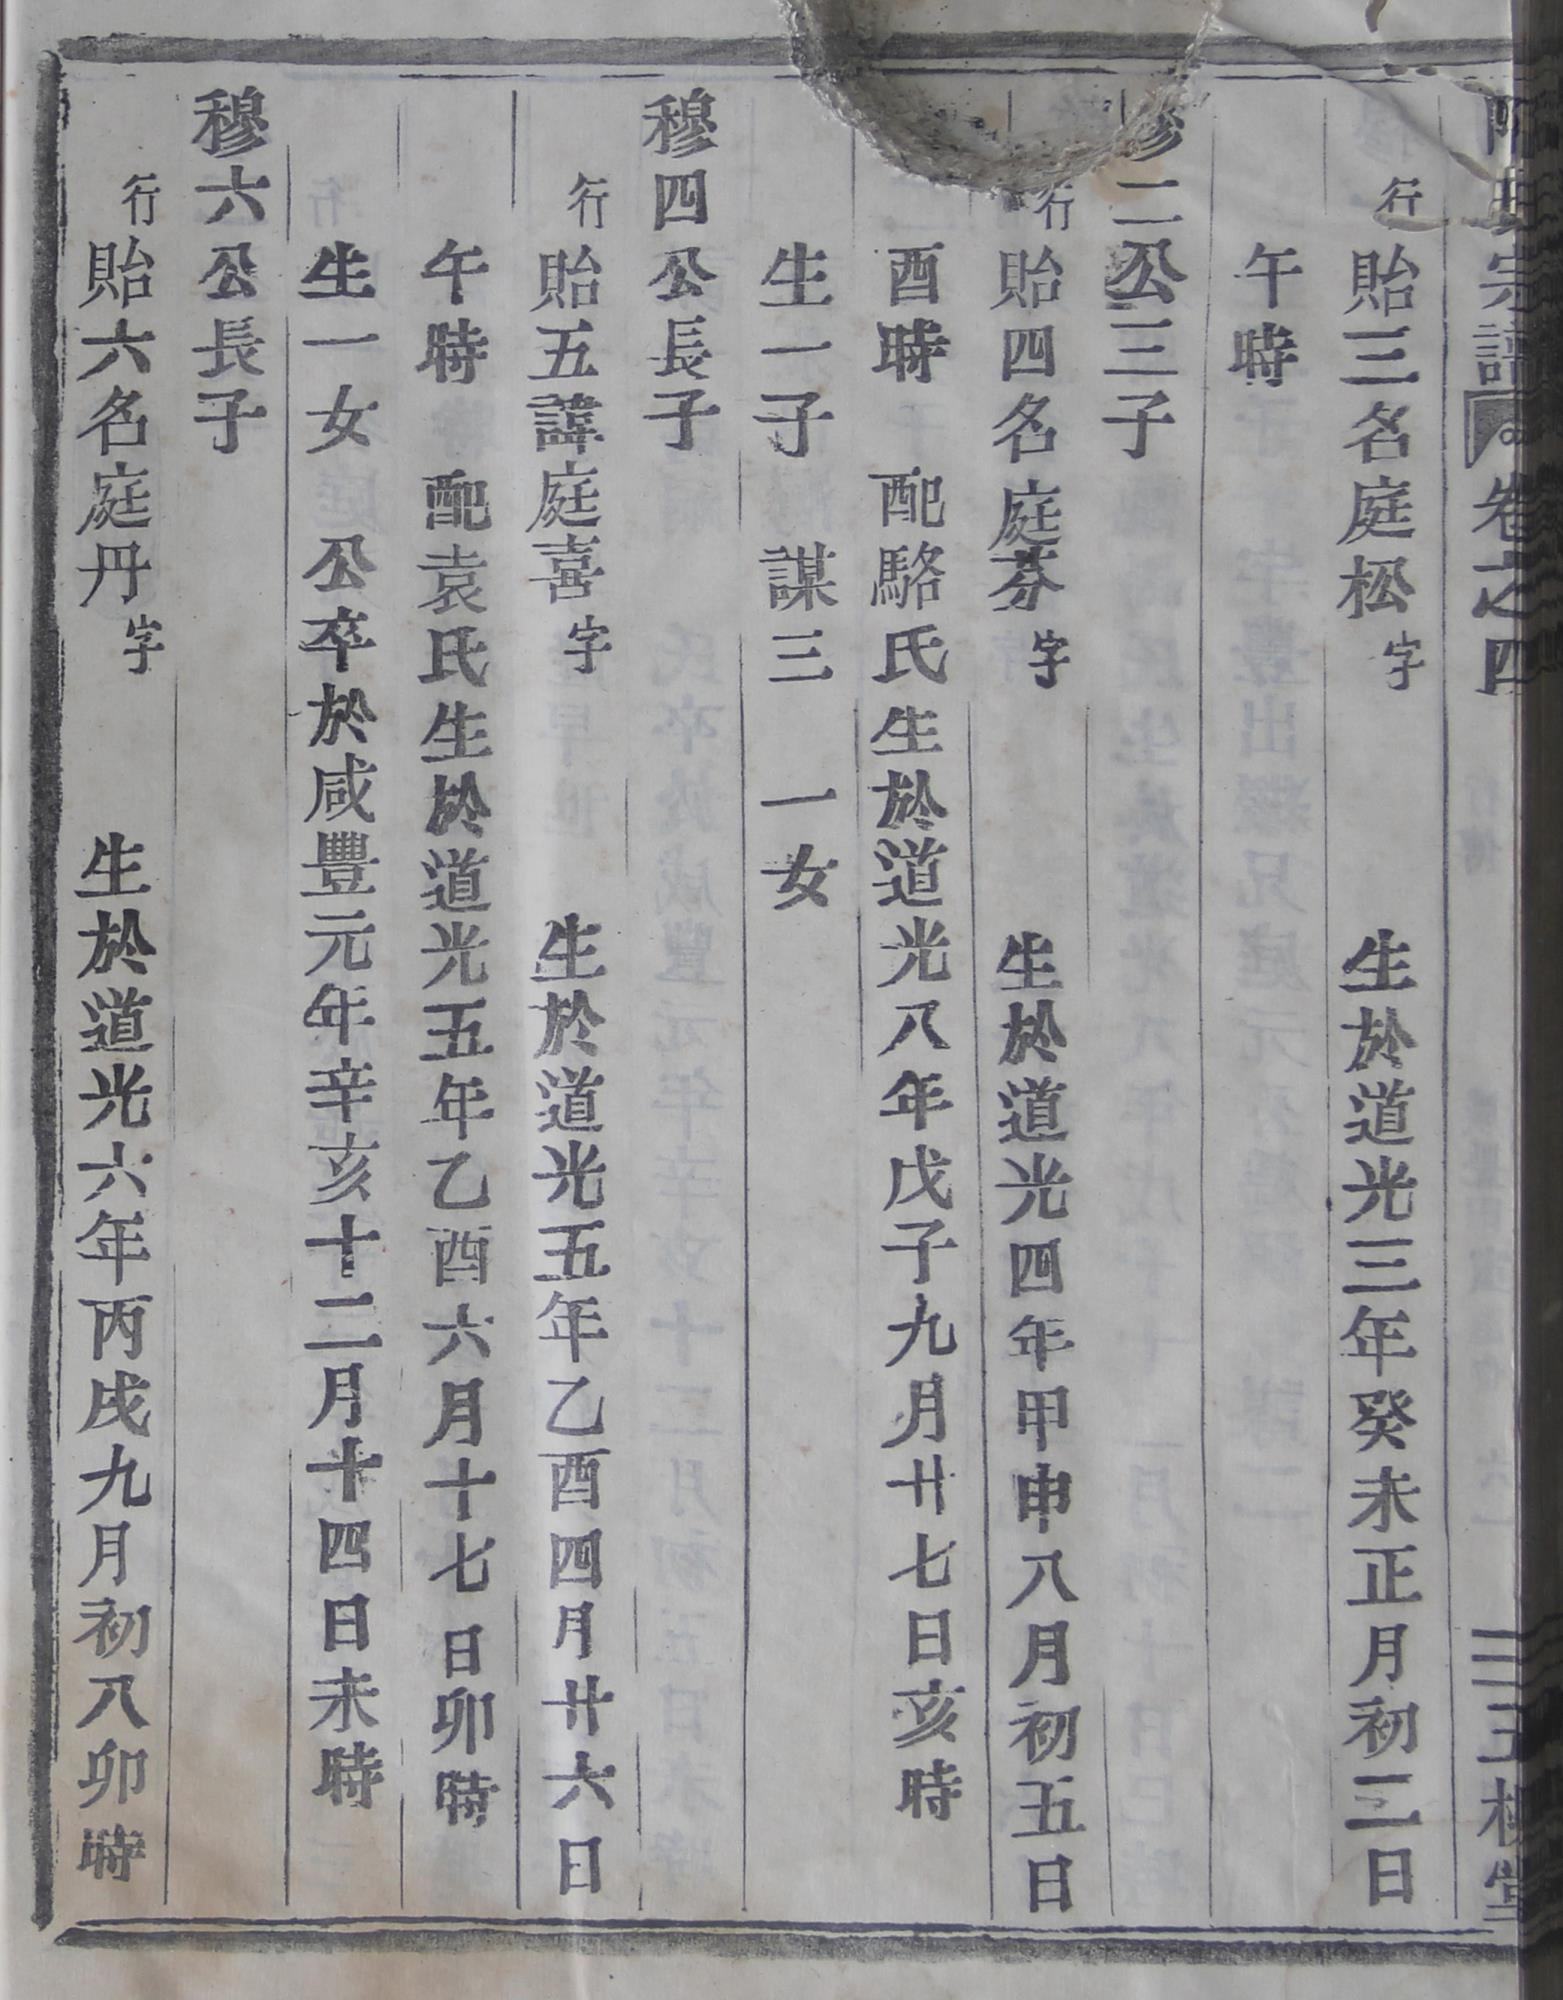 宗譜 卷之四 三槐堂
行貽三名庭松字 生於道光三年癸未正月初三日
午時
穆二公三子
行貽四名庭芬字 生於道光四年甲申八月初五日
酉時 配駱氏生於道光八年戊子九月廿七日亥時
生一子 謀三 一女
穆四公長子
行貽五諱庭喜字 生於道光五年乙酉四月廿六日
午時 配袁氏生於道光五年乙酉六月十七日卯時
生一女 公卒於咸豐元年辛亥十二月十四日未時
穆六公長子
行貽六名庭丹字 生於道光六年丙戌九月初八卯時